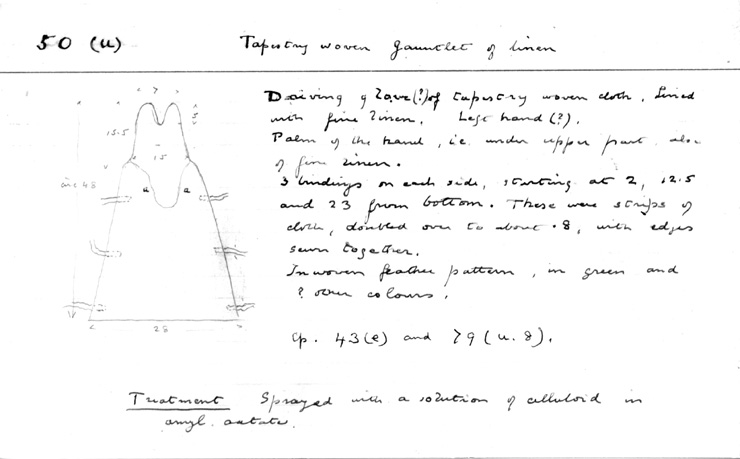 50 (u)
Tapestry woven gauntlet of linen
Driving glove(?) of tapestry woven cloth. Lined
with fine linen. Left hand (?).
Palm of the hand, i.e. under upper part also
of fine linen.
3 bindings on each side, starting at 2, 12.5
and 23 from bottom. These were strips of
cloth, doubled over to about .8, with edges
sewn together.
Inwoven feather pattern, in green and
? other colours.
cp. 43(e) and 79(u.8).
7
5
15.5
15
a a
48
28
Treatment Sprayed with a solution of celluloid in
amyl. acetate.